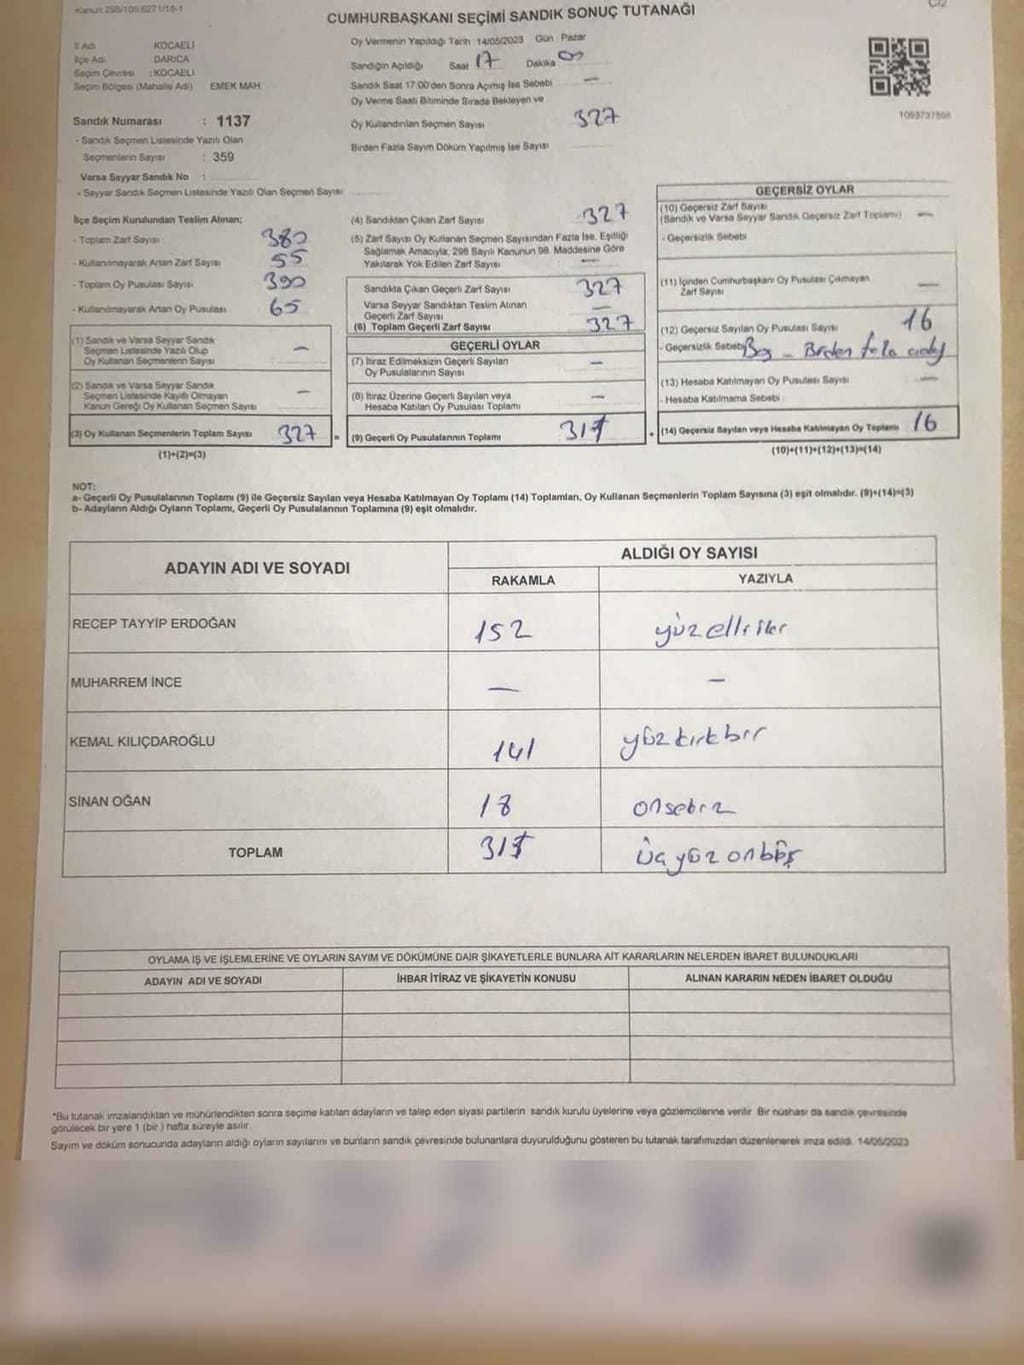 Kanun 298/105,6271/18-1
CUMHURBAŞKANI SEÇİMİ SANDIK SONUÇ TUTANAĞI
İl Adı KOCAELİ
İlçe Adı DARICA
Seçim Çevresi : KOCAELİ
Seçim Bölgesi (Mahalle Adı) EMEK MAH.
Sandık Numarası : 1137
- Sandık Seçmen Listesinde Yazılı Olan
Seçmenlerin Sayısı : 359
Varsa Seyyar Sandık No :
- Seyyar Sandık Seçmen Listesinde Yazılı Olan Seçmen Sayısı
Oy Vermenin Yapıldığı Tarih 14/05/2023 Gün Pazar
Sandığın Açıldığı Saat 17 Dakika 00
Sandık Saat 17:00'den Sonra Açımış İse Sebebi —
Oy Verme Saati Bitiminde Sırada Bekleyen ve
Oy Kullandırılan Seçmen Sayısı 327
Birden Fazla Sayım Döküm Yapılmış İse Sayısı
İlçe Seçim Kurulundan Teslim Alınan;
- Toplam Zarf Sayısı 380
- Kullanılmayarak Artan Zarf Sayısı 55
- Toplam Oy Pusulası Sayısı 390
- Kullanılmayarak Artan Oy Pusulası 65
(1) Sandık ve Varsa Seyyar Sandık
Seçmen Listesinde Yazılı Olup
Oy Kullanan Seçmenlerin Sayısı —
(2) Sandık ve Varsa Seyyar Sandık
Seçmen Listesinde Kayıtlı Olmayan
Kanun Gereği Oy Kullanan Seçmen Sayısı —
(3) Oy Kullanan Seçmenlerin Toplam Sayısı 327
(1)+(2)=(3)
(4) Sandıktan Çıkan Zarf Sayısı 327
(5) Zarf Sayısı Oy Kullanan Seçmen Sayısından Fazla İse, Eşitliği
Sağlamak Amacıyla, 298 Sayılı Kanunun 98. Maddesine Göre
Yakılarak Yok Edilen Zarf Sayısı —
Sandıkta Çıkan Geçerli Zarf Sayısı 327
Varsa Seyyar Sandıktan Teslim Alınan
Geçerli Zarf Sayısı —
(6) Toplam Geçerli Zarf Sayısı 327
GEÇERLİ OYLAR
(7) İtiraz Edilmeksizin Geçerli Sayılan
Oy Pusulalarının Sayısı —
(8) İtiraz Üzerine Geçerli Sayılan veya
Hesaba Katılan Oy Pusulası Toplamı —
= (9) Geçerli Oy Pusulalarının Toplamı
GEÇERSİZ OYLAR
(10) Geçersiz Zarf Sayısı
(Sandık ve Varsa Seyyar Sandık Geçersiz Zarf Toplamı) —
- Geçersizlik Sebebi
(11) İçinden Cumhurbaşkanı Oy Pusulası Çıkmayan
Zarf Sayısı —
(12) Geçersiz Sayılan Oy Pusulası Sayısı 16
- Geçersizlik Sebebi Boş - Birden fazla
(13) Hesaba Katılmayan Oy Pusulası Sayısı —
- Hesaba Katılmama Sebebi
+ (14) Geçersiz Sayılan veya Hesaba Katılmayan Oy Toplamı 16
(10)+(11)+(12)+(13)=(14)
NOT:
a- Geçerli Oy Pusulalarının Toplamı (9) ile Geçersiz Sayılan veya Hesaba Katılmayan Oy Toplamı (14) Toplamları, Oy Kullanan Seçmenlerin Toplam Sayısına (3) eşit olmalıdır. (9)+(14)=(3)
b- Adayların Aldığı Oyların Toplamı, Geçerli Oy Pusulalarının Toplamına (9) eşit olmalıdır.
ADAYIN ADI VE SOYADI ALDIĞI OY SAYISI
RAKAMLA YAZIYLA
RECEP TAYYİP ERDOĞAN 152 yüzelliiki
MUHARREM İNCE — —
KEMAL KILIÇDAROĞLU 141 yüzkırkbir
SİNAN OĞAN 18 onsekiz
TOPLAM üçyüzonbeş
OYLAMA İŞ VE İŞLEMLERİNE VE OYLARIN SAYIM VE DÖKÜMÜNE DAİR ŞİKAYETLERLE BUNLARA AİT KARARLARIN NELERDEN İBARET BULUNDUKLARI
ADAYIN ADI VE SOYADI İHBAR İTİRAZ VE ŞİKAYETİN KONUSU ALINAN KARARIN NEDEN İBARET OLDUĞU
*Bu tutanak imzalandıktan ve mühürlendikten sonra seçime katılan adayların ve talep eden siyasi partilerin sandık kurulu üyelerine veya gözlemcilerine verilir. Bir nüshası da sandık çevresinde
görülecek bir yere 1 (bir ) hafta süreyle asılır.
Sayım ve döküm sonucunda adayların aldığı oyların sayılarını ve bunların sandık çevresinde bulunanlara duyurulduğunu gösteren bu tutanak tarafımızdan düzenlenerek imza edildi. 14/05/2023